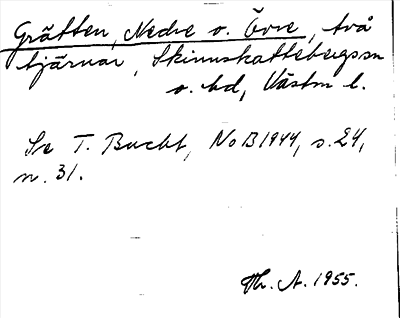 Grätten, Nedre o. Övre, två
tjärnar, Skinnskattebergs sn
o. hd, Västm l.
Se T. Bucht, NoB 1944, s. 24,
n. 31.
Th. A. 1955.